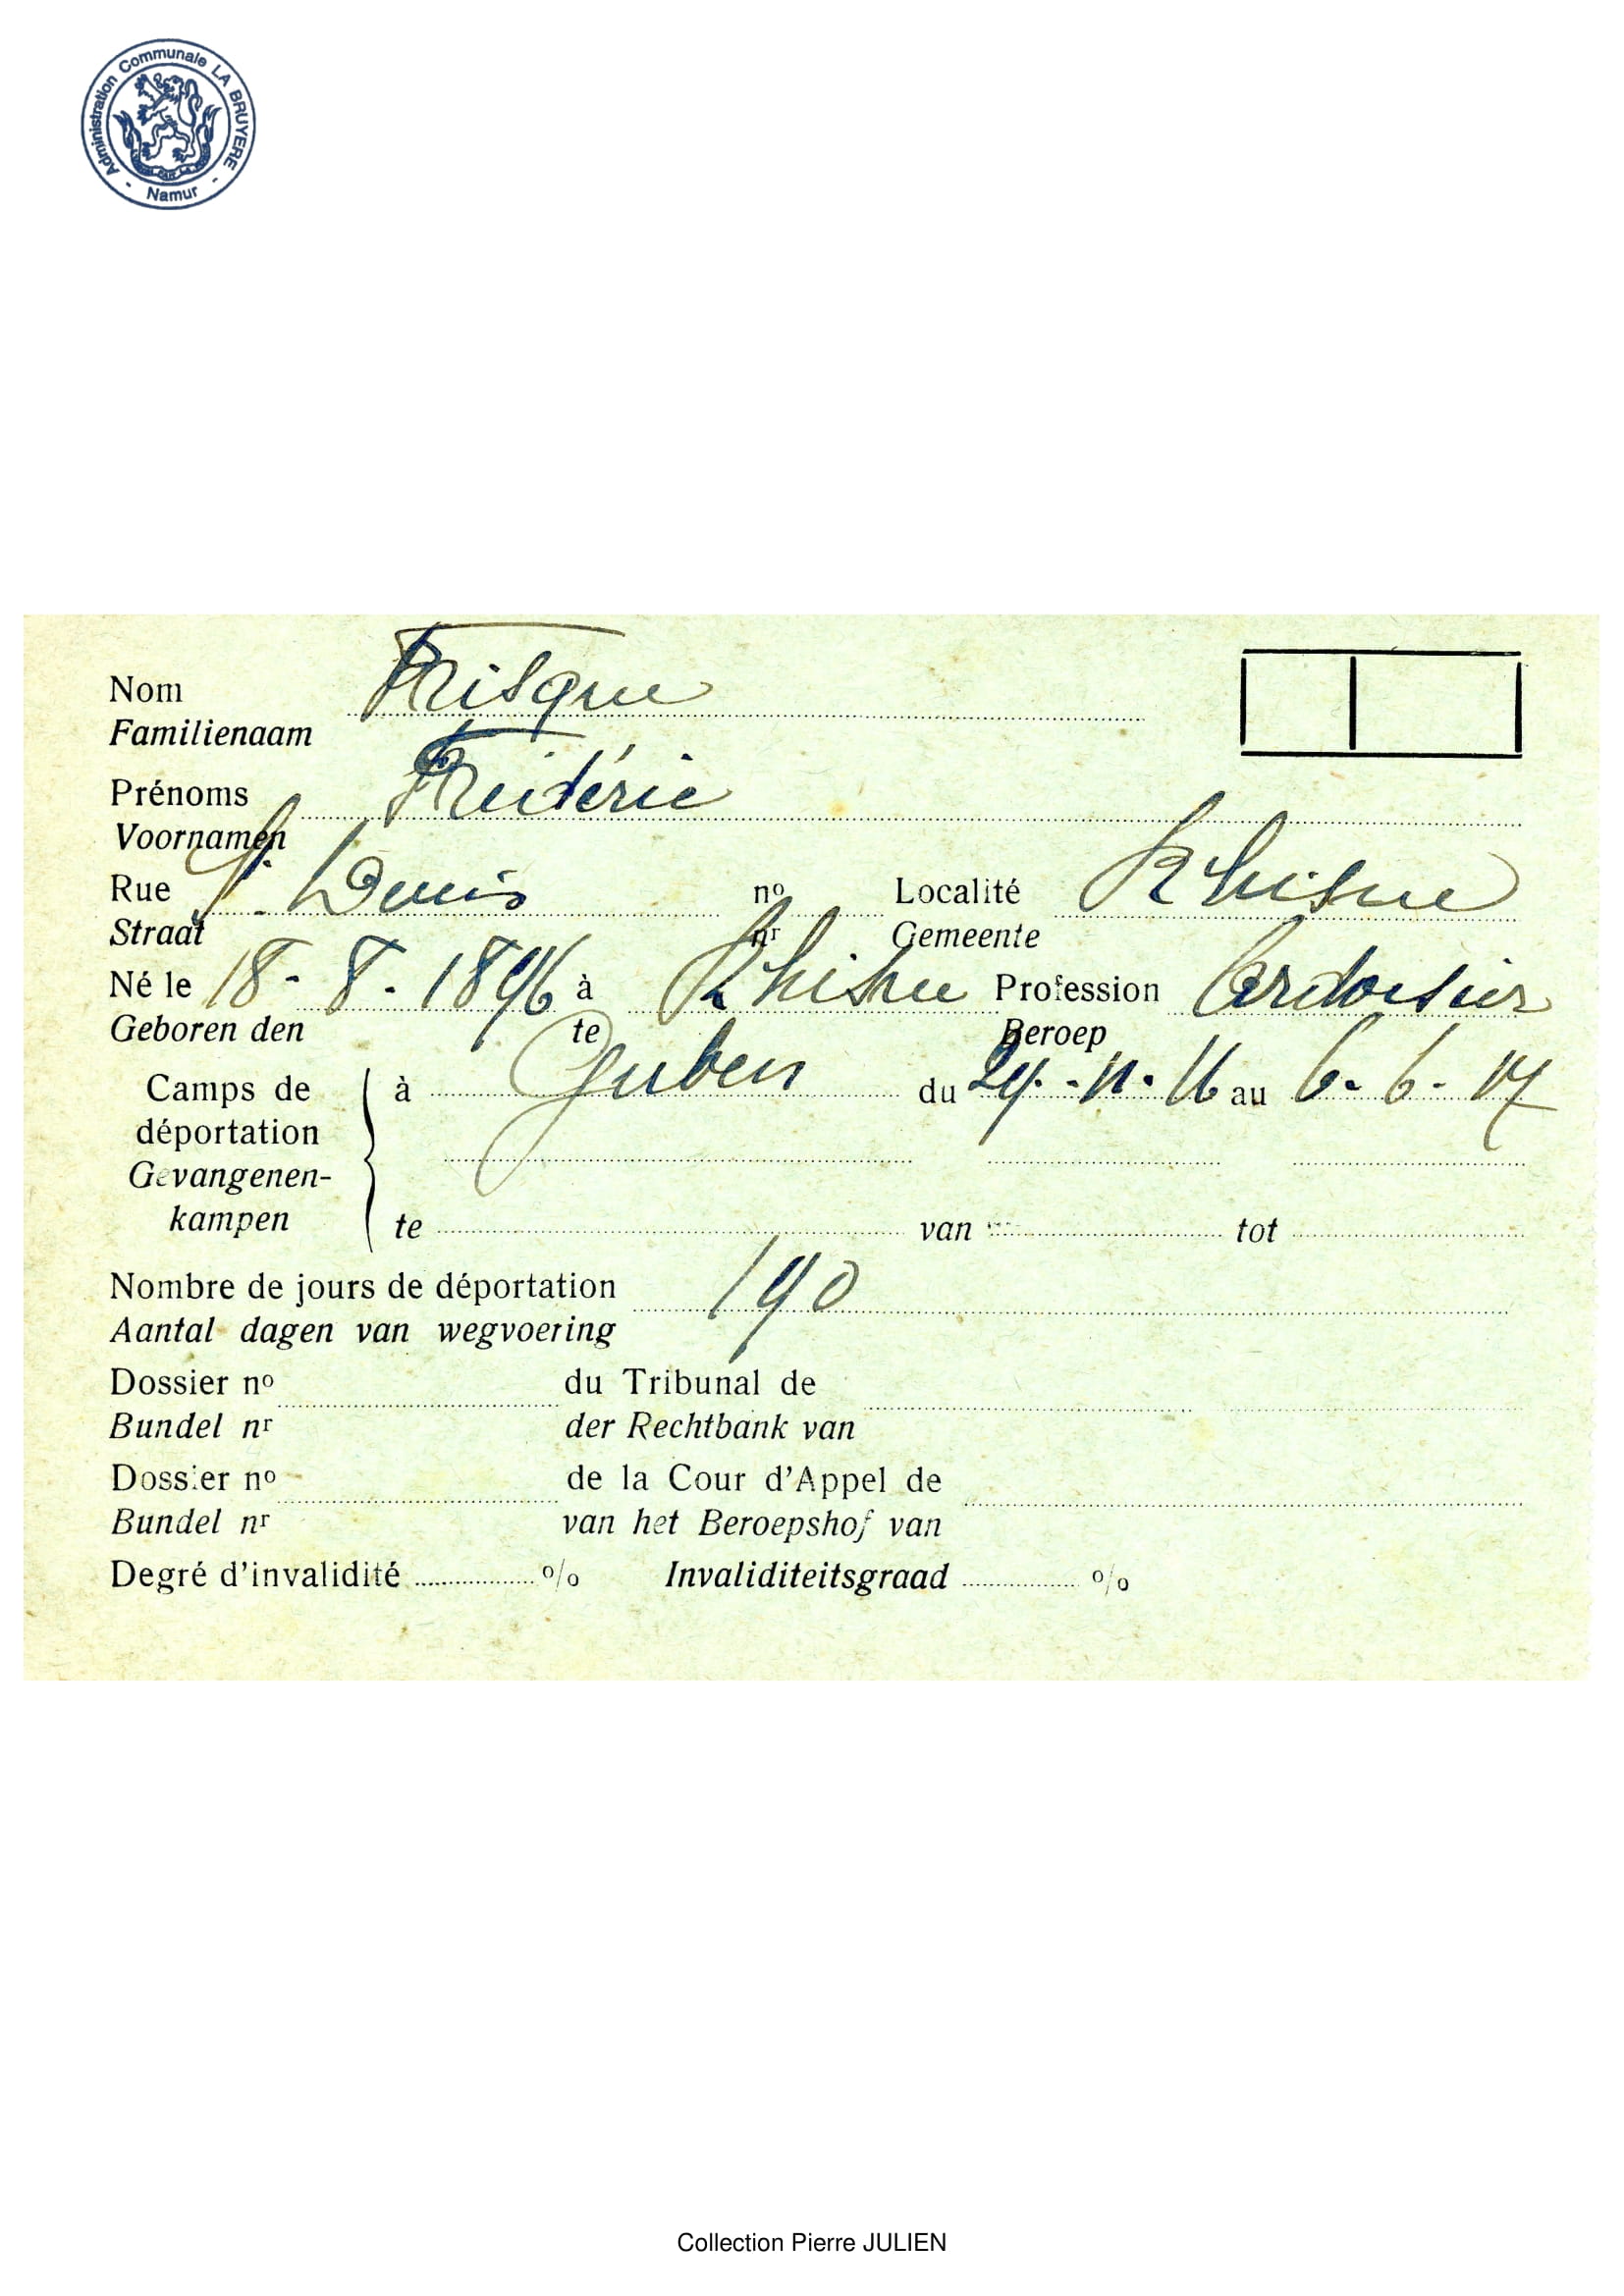 Administration Communale LA BRUYERE
- Namur -
Nom Frisque
Familienaam
Prénoms Frédéric
Voornamen
Rue St. Denis nº Localité Rhisne
Straat nr Gemeente
Né le 18 - 8 - 1896 à Rhisne Profession Ardoisier
Geboren den te Beroep
Camps de à Guben du 29 - 11 - 16 au 6 - 6 - 17
déportation
Gevangenen-
kampen te van tot
Nombre de jours de déportation 190
Aantal dagen van wegvoering
Dossier nº du Tribunal de
Bundel nr der Rechtbank van
Dossier nº de la Cour d'Appel de
Bundel nr van het Beroepshof van
Degré d'invalidité % Invaliditeitsgraad %
Collection Pierre JULIEN